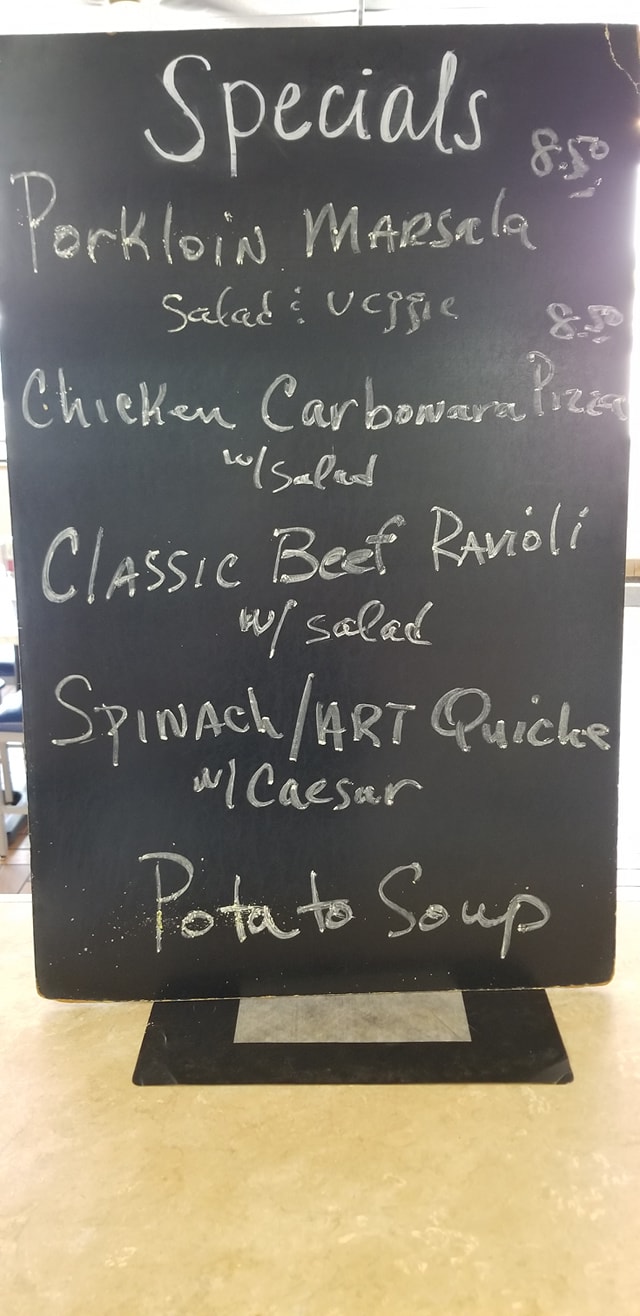 Specials
8.50
Porkloin Marsala
Salad & Veggie
8.50
Chicken Carbonara Pizza
w/ Salad
Classic Beef Ravioli
w/ salad
Spinach/ART Quiche
w/ Caesar
Potato Soup